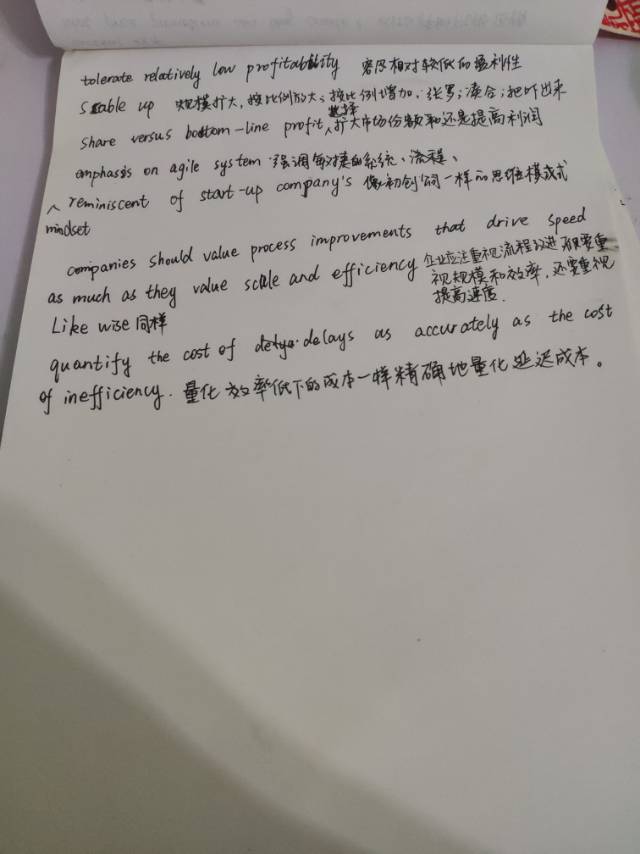 tolerate relatively low profitability 容忍相对较低的盈利性
scable up 规模扩大,按比例放大;按比例增加,张罗;凑合;把吓出来
share versus bottom-line profit, 选择扩大市场份额和还是提高利润
emphasis on agile system 强调敏捷的系统、流程、
reminiscent of start-up company's 像初创公司一样的思维模式
mindset
companies should value process improvements that drive speed
as much as they value scale and efficiency 企业应注重视流程改进 要重
视规模和效率,还要重视
提高速度.
Like wise 同样
quantify the cost of delays as accurately as the cost
of inefficiency. 量化效率低下的成本一样精确地量化延迟成本。